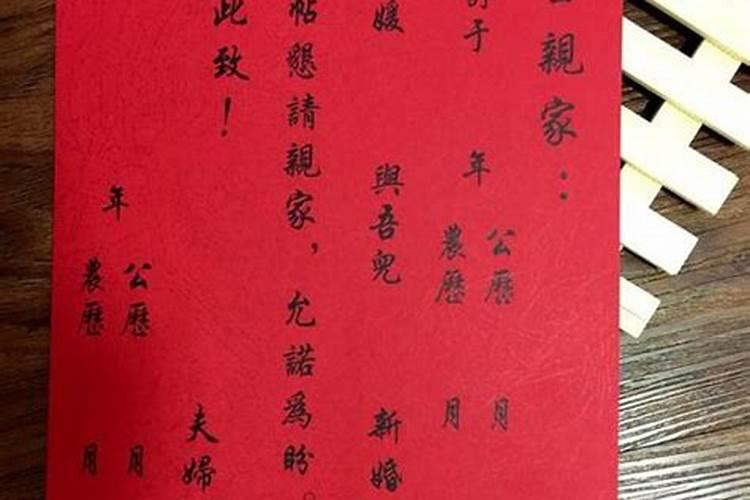 親家：
于 年 公歷 月
農歷 月
媛 與吾兒 新婚
帖懇請親家，允諾爲盼。
此致！
夫婦
年 公歷 月
農歷 月